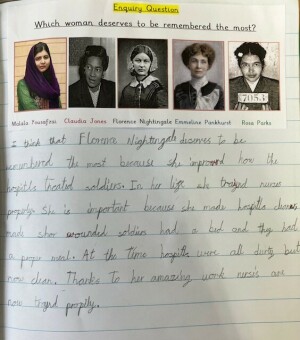 Enquiry Question
Which woman deserves to be remembered the most?
7053
Malala Yousafzai Claudia Jones Florence Nightingale Emmeline Pankhurst Rosa Parks
I think that Florence Nightengale deserves to be
remembered the most because she improved how the
hospitls treated soldiers. In her life she traynd nurses
properly. She is important because she made hospitls clener
made shor wounded soldiers had a bed and they had
a proper meal. At the time hospitls were all dirty but
now clean. Thanks to her amazing work nersis are
now traynd propply.